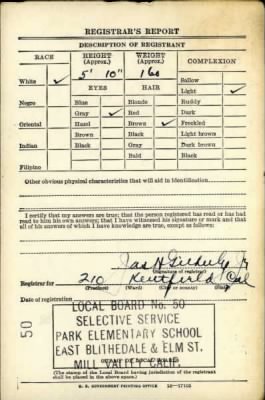 REGISTRAR'S REPORT
DESCRIPTION OF REGISTRANT
RACE HEIGHT (Approx.) WEIGHT (Approx.) COMPLEXION
White ✓ 5' 10" 160 Sallow
EYES HAIR Light ✓
Negro Blue Blonde Ruddy
Gray ✓ Red Dark
Oriental Hazel Brown ✓ Freckled
Brown Black Light brown
Indian Black Gray Dark brown
Bald Black
Filipino
Other obvious physical characteristics that will aid in identification
I certify that my answers are true; that the person registered has read or has had
read to him his own answers; that I have witnessed his signature or mark and that
all of his answers of which I have knowledge are true, except as follows:
Jas H
(Signature of registrar)
Registrar for 210 Kentfield Cal
(Precinct) (Ward) (City or county)
Date of registration
LOCAL BOARD No. 50
SELECTIVE SERVICE
PARK ELEMENTARY SCHOOL
EAST BLITHEDALE & ELM ST.
MILL VALLEY CALIF.
50
(The stamp of the Local Board having jurisdiction of the registrant
shall be placed in the above space.)
U. S. GOVERNMENT PRINTING OFFICE